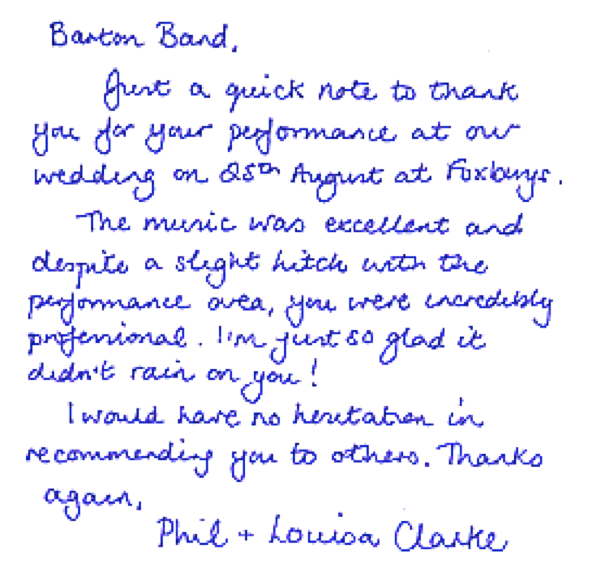 Barton Band,
Just a quick note to thank
you for your performance at our
wedding on 25th August at Foxburys.
The music was excellent and
despite a slight hitch with the
performance area, you were incredibly
professional. I'm just so glad it
didn't rain on you!
I would have no hesitation in
recommending you to others. Thanks
again,
Phil + Louisa Clarke